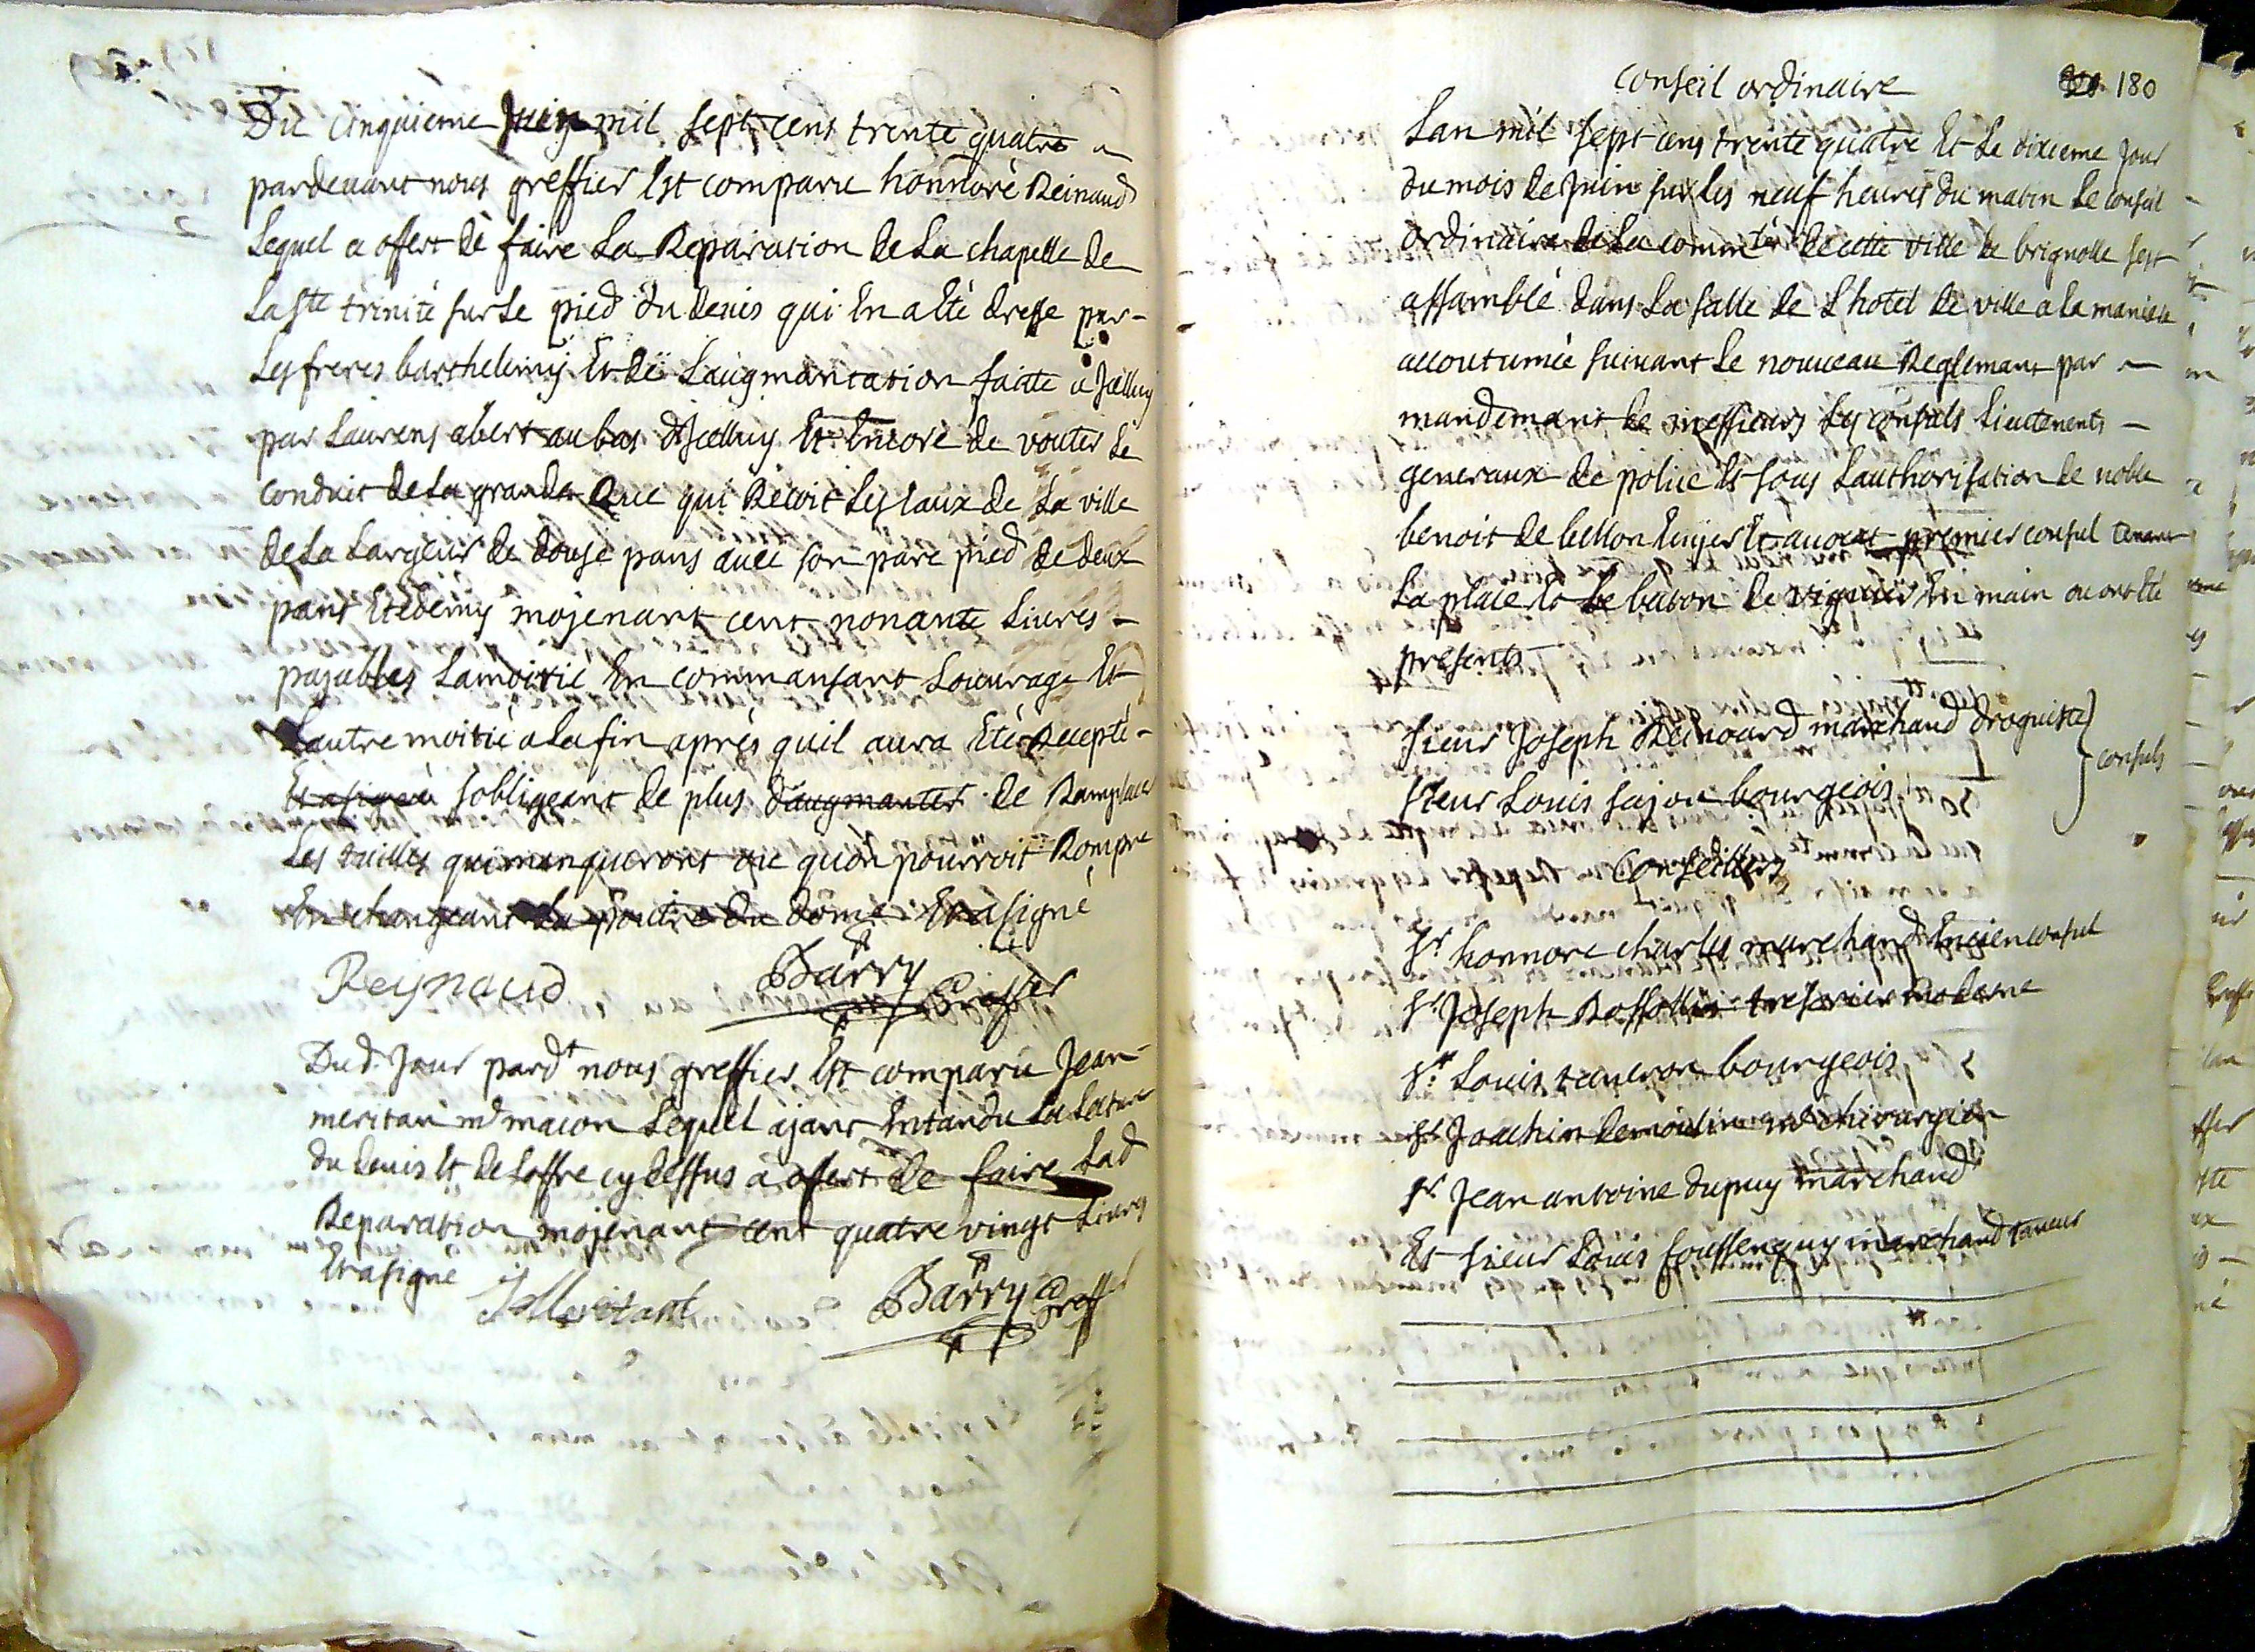 Du cinquieme Juin mil sept cens trente quatre
pardevant nous greffier Est comparu honnoré Reinaud
Lequel a offert de faire La Reparation de La chapelle de
La Ste trinité sur Le pied du devis qui En a Eté dressé par
Les freres barthelemy Et de Laugmantation faite a Jcelluy
par Laurens abert au bas dJcelluy Et Encore de vouter Le
conduit de La grande Rue qui Recoit Les Eaux de La ville
de La Largeur de douse pans avec son pare pied de deux
pans Et demy mojenant cent nonante Livres
pajables La moitié En commansant Louvrage Et
Lautre moitié a La fin aprés quil aura Eté Recepté
Et a signé sobligeant de plus daugmanter de Ramplacer
Les tuilles qui manqueront ou quon pourroit Rompre
En changeant La poutre du dome Et a signé
Reynaud Barry Greffier
Dud. Jour pardt nous greffier Est comparu Jean
meritan me macon Lequel ajant Entandu La Lecture
du devis Et de Loffre cy dessus a offert de faire Lad
Reparation mojenant cent quatre vingt Livres
Et a signe JMeritant Barry Greff
180
Conseil ordinaire
Lan mil sept cens trente quatre Et Le dixieme jour
du mois de Juin sur Les neuf heures du matin Le conseil
ordinaire de La commté de cette ville de brignolle sest
assamblé dans La salle de Lhotel de ville a La maniere
accoutumée suivant Le nouveau Reglemant par
mandemant de messieurs Les consuls Lieutenents
generaux de police Et sous Lauthorisation de noble
benoit de bellon Ecuyer Et avocat premier consul tenant
La place Et Le baton de viguier En main ou ont Eté
presents
sieur Joseph Reinouard marchand droguiste
sieur Louis sajou bourgeois
consuls
Conseillers
Sr honnore charles marchand Encien consul
Sr Joseph Rossollin tresorier moderne
Sr Louis taneron bourgeois
Sr Joachin demoulin me chirurgien
Sr Jean antoine dupuy marchand
Et sieur Louis foussenquy marchand taneur